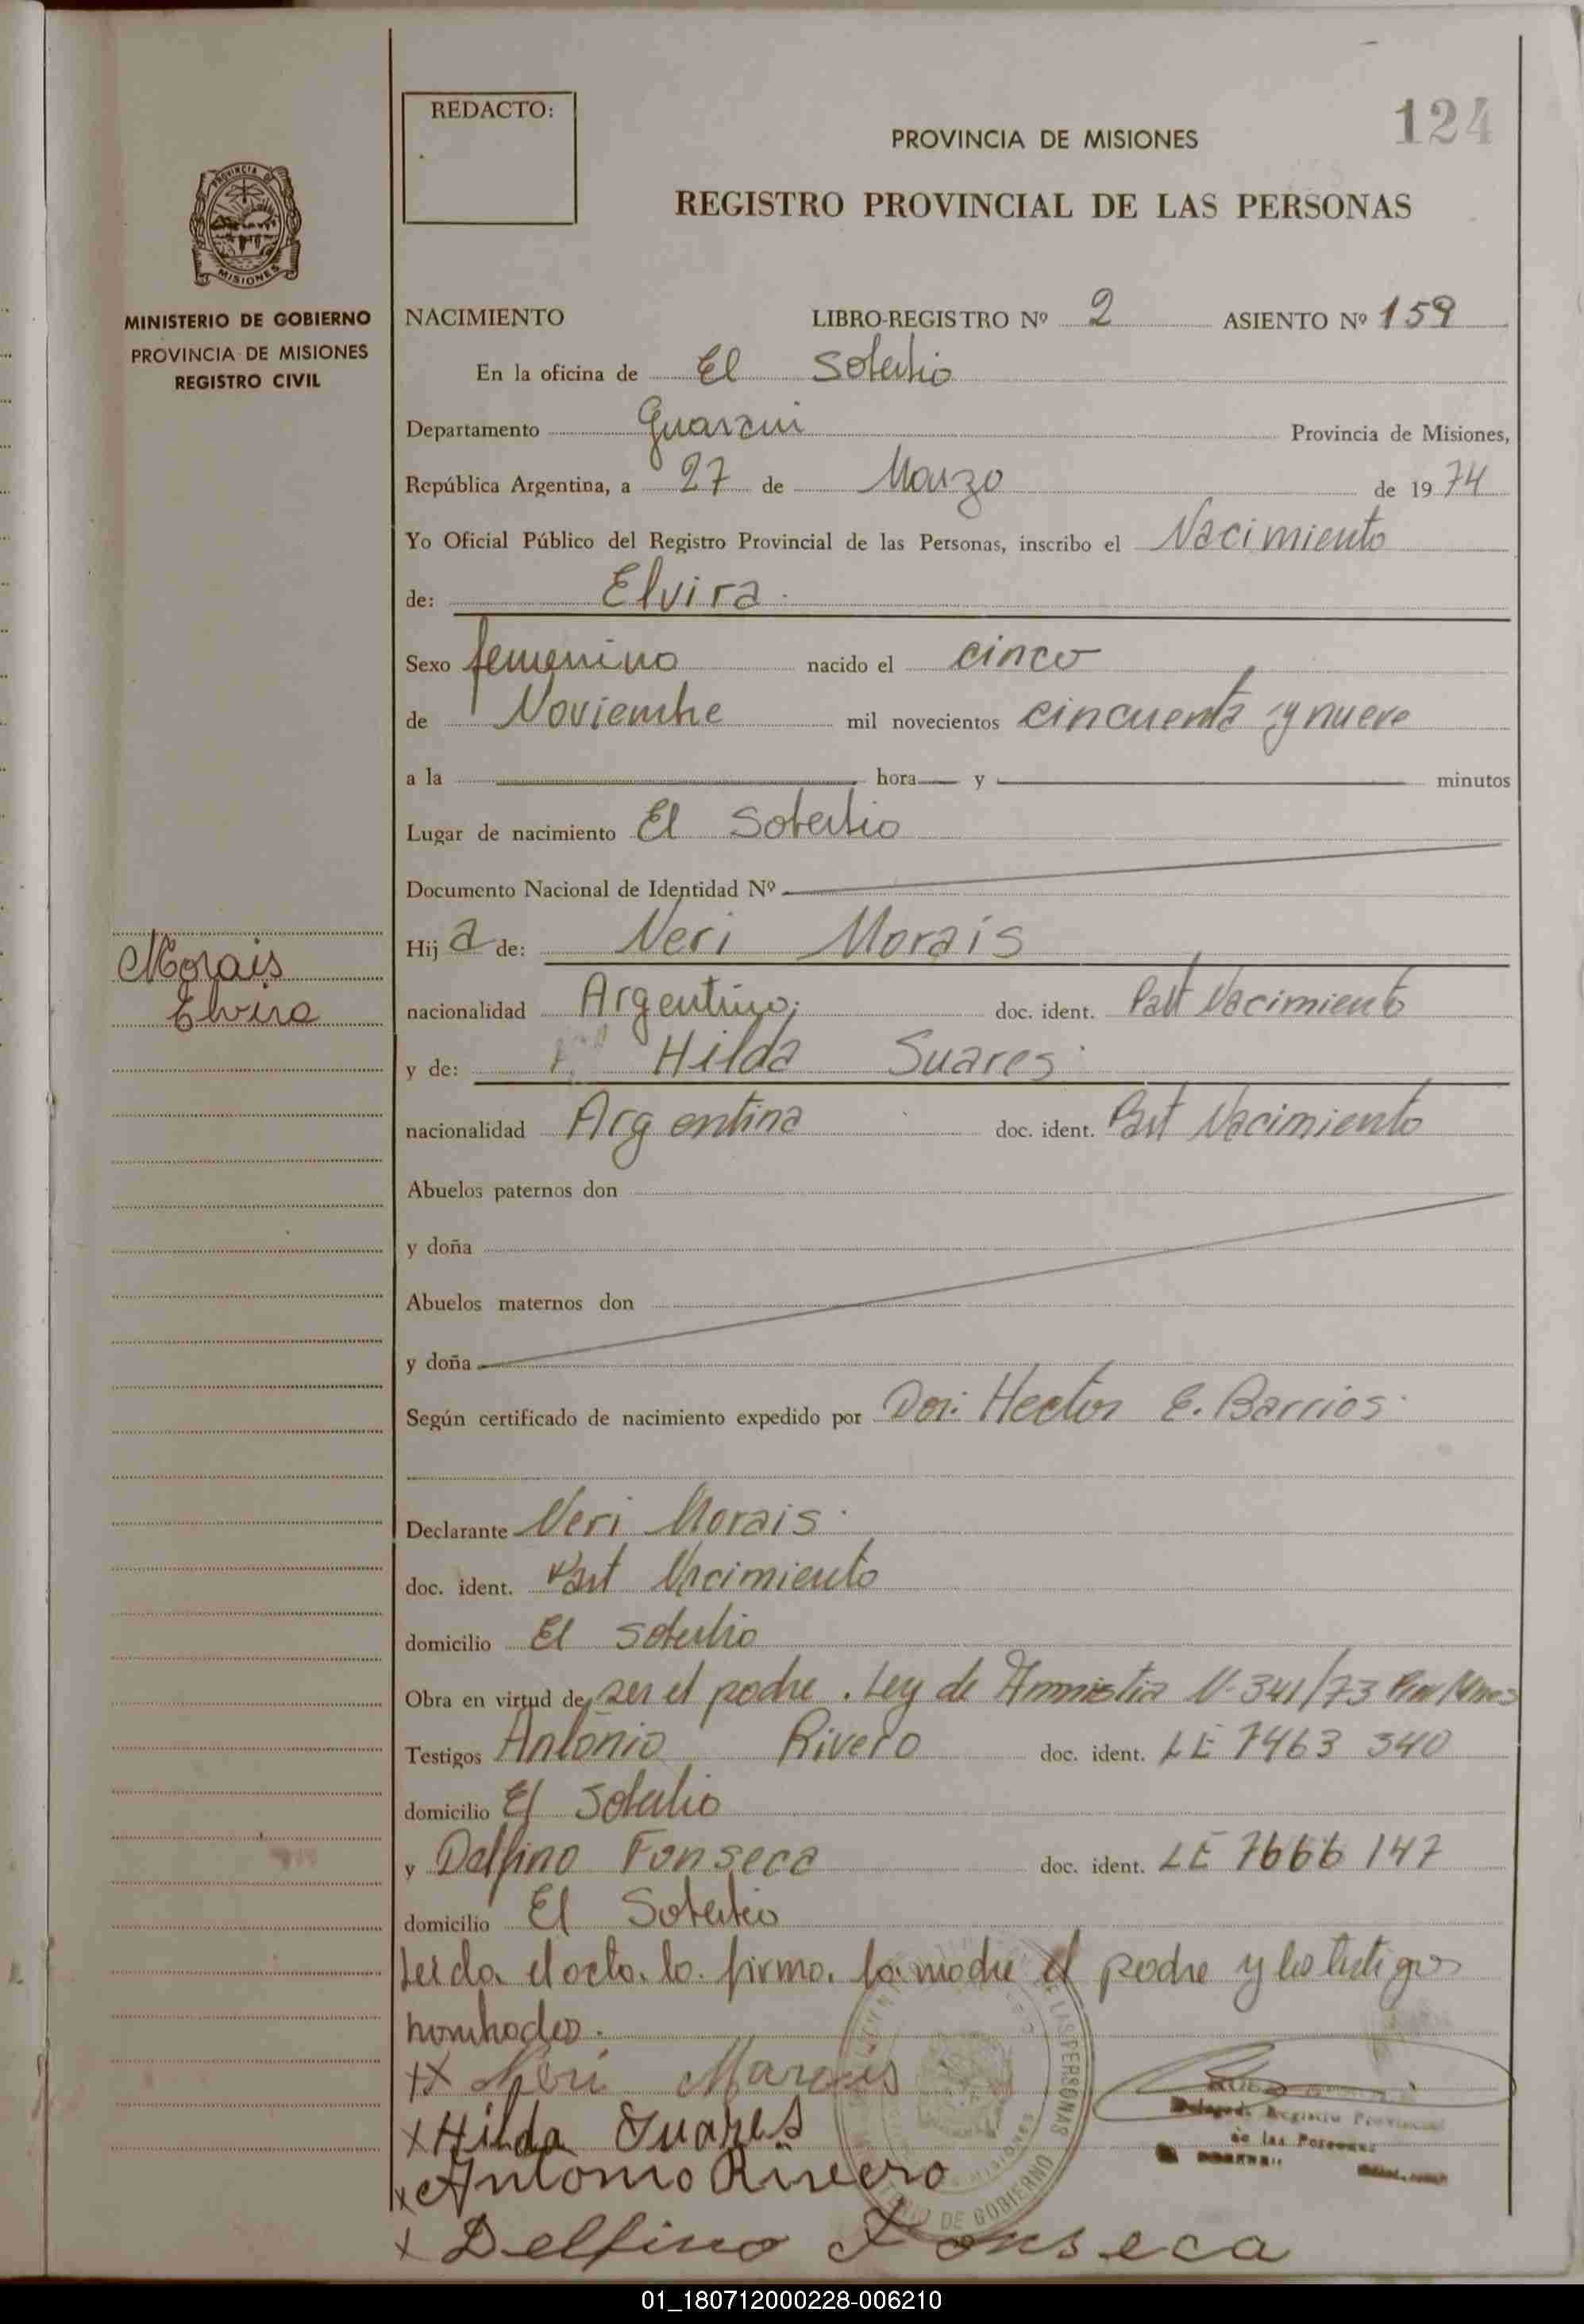 REDACTO:
124
PROVINCIA DE MISIONES
REGISTRO PROVINCIAL DE LAS PERSONAS
PROVINCIA DE
MISIONES
MINISTERIO DE GOBIERNO
PROVINCIA DE MISIONES
REGISTRO CIVIL
NACIMIENTO LIBRO-REGISTRO Nº 2 ASIENTO Nº 159
En la oficina de El Soberbio
Departamento Guarani Provincia de Misiones,
República Argentina, a 27 de Marzo de 1974
Yo Oficial Público del Registro Provincial de las Personas, inscribo el Nacimiento
de: Elvira
Sexo femenino nacido el cinco
de Noviembre mil novecientos cincuenta y nueve
a la hora y minutos
Lugar de nacimiento El Soberbio
Documento Nacional de Identidad Nº
Morais
Elvira
Hija de: Neri Morais
nacionalidad Argentino; doc. ident. Part Nacimiento
y de: Hilda Suares
nacionalidad Argentina doc. ident. Part Nacimiento
Abuelos paternos don
y doña
Abuelos maternos don
y doña
Según certificado de nacimiento expedido por Hector E. Barrios
Declarante Neri Morais
doc. ident. Part Nacimiento
domicilio El Soberbio
Obra en virtud de ser el padre. Ley de Amnistia Nº 341/73
Testigos Antonio Rivero doc. ident. LE 7463 340
domicilio El Soberbio
y Delfino Fonseca doc. ident. LE 7666 147
domicilio El Soberbio
Leida el acta. lo. firma. la madre el padre y los testigos
nombrados.
XX Neri Marais
X Hilda Suares
X Antonio Rivero
X Delfino Fonseca
DE LAS PERSONAS
MISIONES
DE GOBIERNO
Registro Provincial
de las Personas
01_180712000228-006210